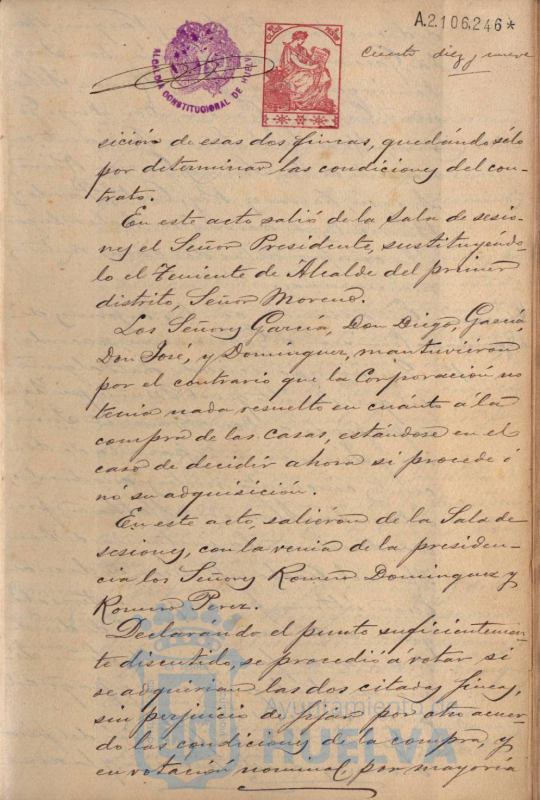 A.2.106.246*
ciento diez y nueve
ALCALDIA CONSTITUCIONAL DE HUELVA
sición de esas dos fincas, quedándo sólo
por determinar las condiciones del con-
trato.
En este acto salió de la Sala de sesio-
nes el Señor Presidente, sustituyéndo-
lo el Teniente de Alcalde del primer
distrito, Señor Moreno.
Los Señores García, Don Diego, García,
Don José, y Dominguez, mantuviéron
por el contrario que la Corporación no
tenia nada resuelto en cuánto á la
compra de las casas, estándose en el
caso de decidir ahora si procede ó
nó su adquisición.
En este acto, saliéron de la Sala de
sesiones, con la venia de la presiden-
cia los Señores Romero Dominguez y
Romero Perez.
Declarando el punto suficientemen-
te discutido, se procedió á votar si
se adquirian las dos citadas fincas,
sin perjuicio de fijar por otro acuer-
do las condiciones de la compra, y
en votación nominal, por mayoría
Ayuntamiento de
HUELVA